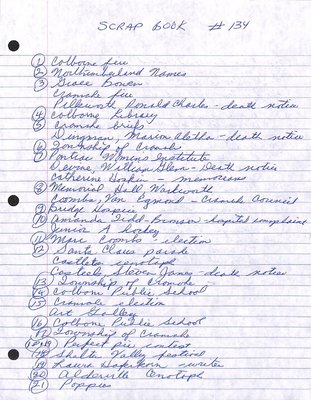 SCRAP BOOK # 134
1 Colborne fire
2 Northumberland Names
3 Grace Bowen
Cramahe fire
Pilkworth Ronald Charles - death notice
4 Colborne Library
5 Cramahe briefs
Dingman, Marion Aletha - death notice
6 Township of Cramahe
7 Pontiac Womens Institute
Devine, William Glenn - Death notice
Catherine - memoriam
8 Memorial Hall Warkworth
Coombs, Van Egmond - Cramahe Council
9 Bridge Hospice
10 Amanda Todd - Bronson hospital complaint
Junior A hockey
11 Marc Coombs - election
12 Santa Claus parade
Castleton cenotaph
Casteels Steven James - death notice
13 Township of Cramahe
14 Colborne Public School
15 Cramahe election
Art Gallery
16 Colborne Public School
17 Township of Cramahe
Perfect pie contest
18 Shelter Valley festival
19 Laura - writer
20 Alderville Cenotaph
21 Poppies